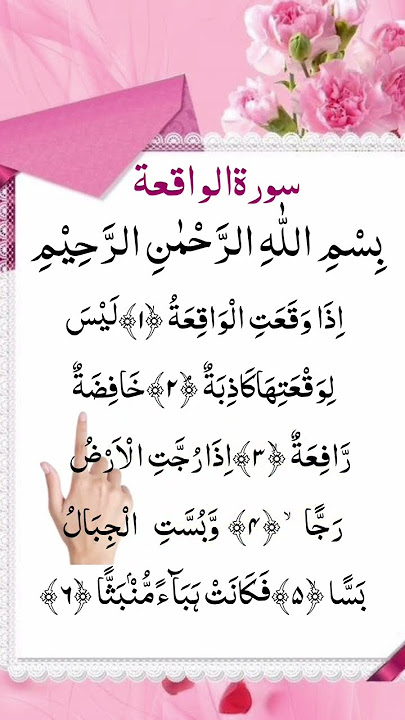 سورةالواقعة
بِسْمِ اللّٰهِ الرَّحْمٰنِ الرَّحِيْمِ
اِذَا وَقَعَتِ الْوَاقِعَةُ ﴿۱﴾ لَيْسَ
لِوَقْعَتِهَا كَاذِبَةٌ ۘ﴿۲﴾ خَافِضَةٌ
رَّافِعَةٌ ﴿۳﴾ اِذَا رُجَّتِ الْاَرْضُ
رَجًّا ۙ ﴿۴﴾ وَّبُسَّتِ الْجِبَالُ
بَسًّا ﴿۵﴾ فَكَانَتْ هَبَآءً مُّنْۢبَثًّا ﴿۶﴾